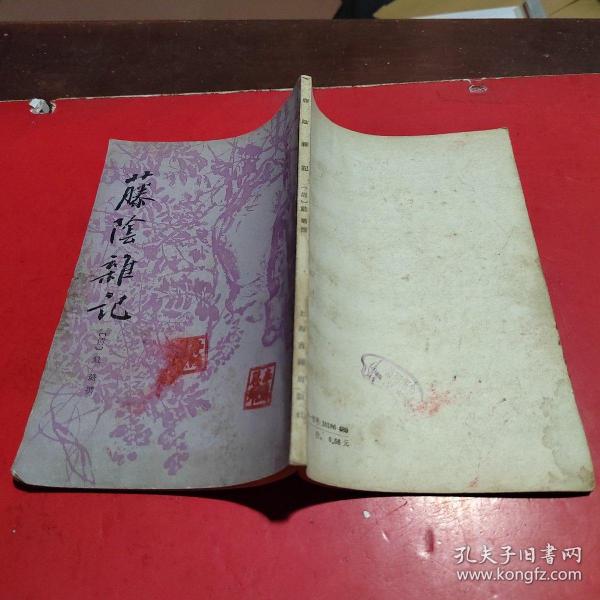 藤陰雜記
〔清〕戴璐撰
藤陰雜記
〔清〕戴璐撰
上海古籍出版社
定价：0.58元
孔夫子旧书网
www.kongfz.com